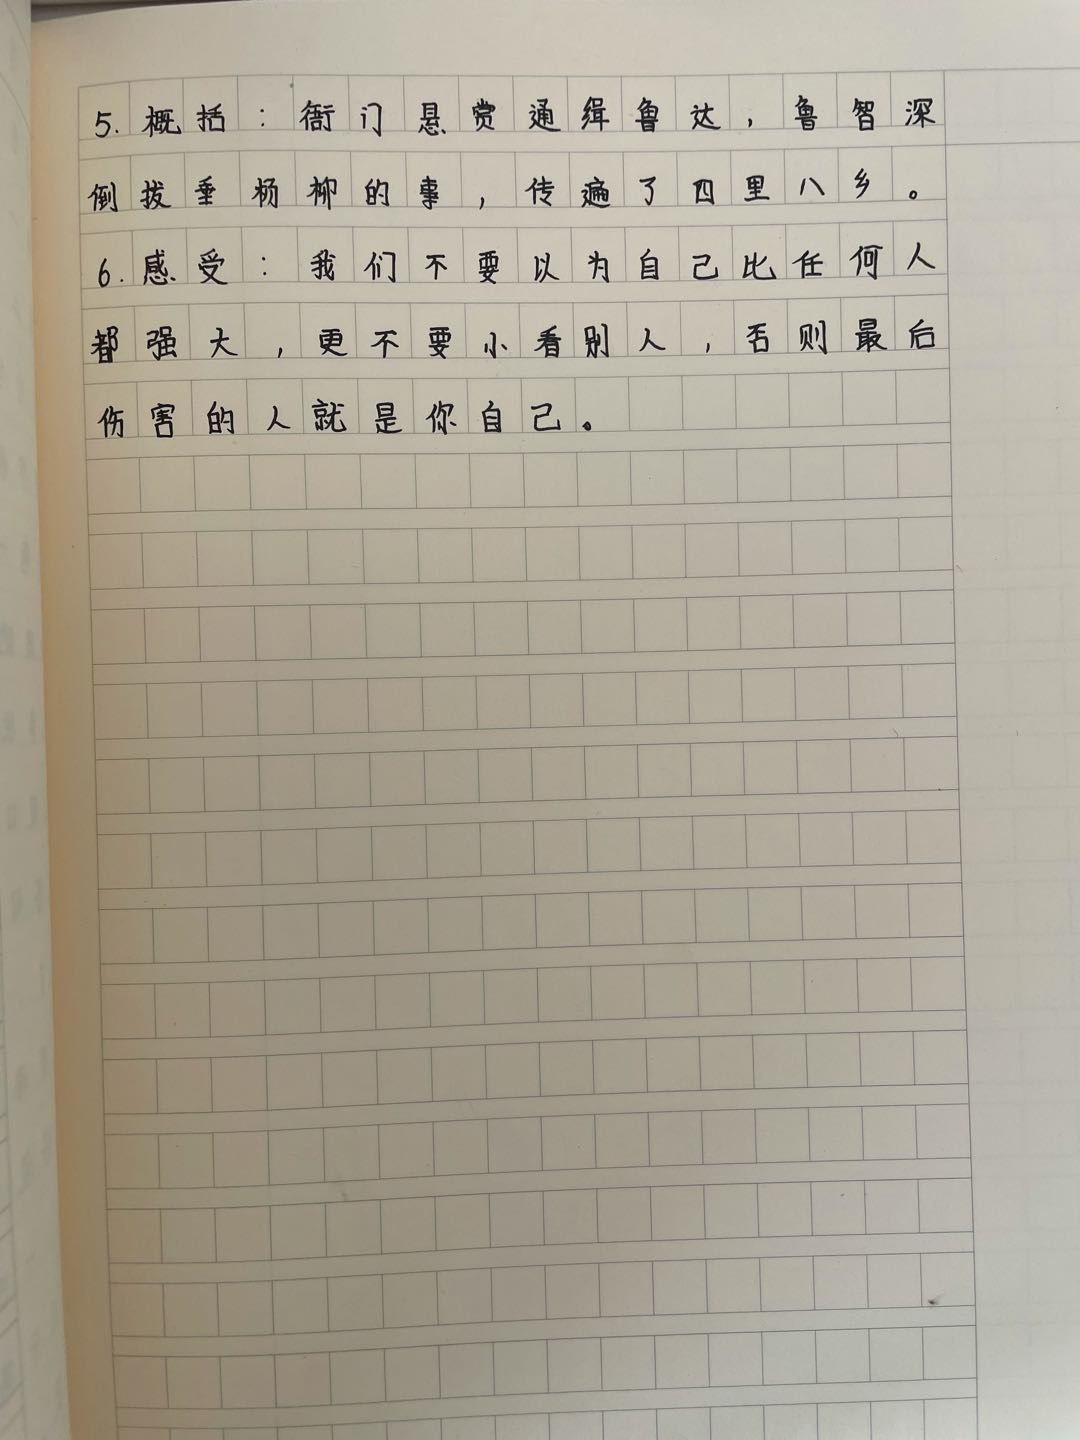 5.概括：衙门悬赏通缉鲁达，鲁智深
倒拔垂杨柳的事，传遍了四里八乡。
6.感受：我们不要以为自己比任何人
都强大，更不要小看别人，否则最后
伤害的人就是你自己。